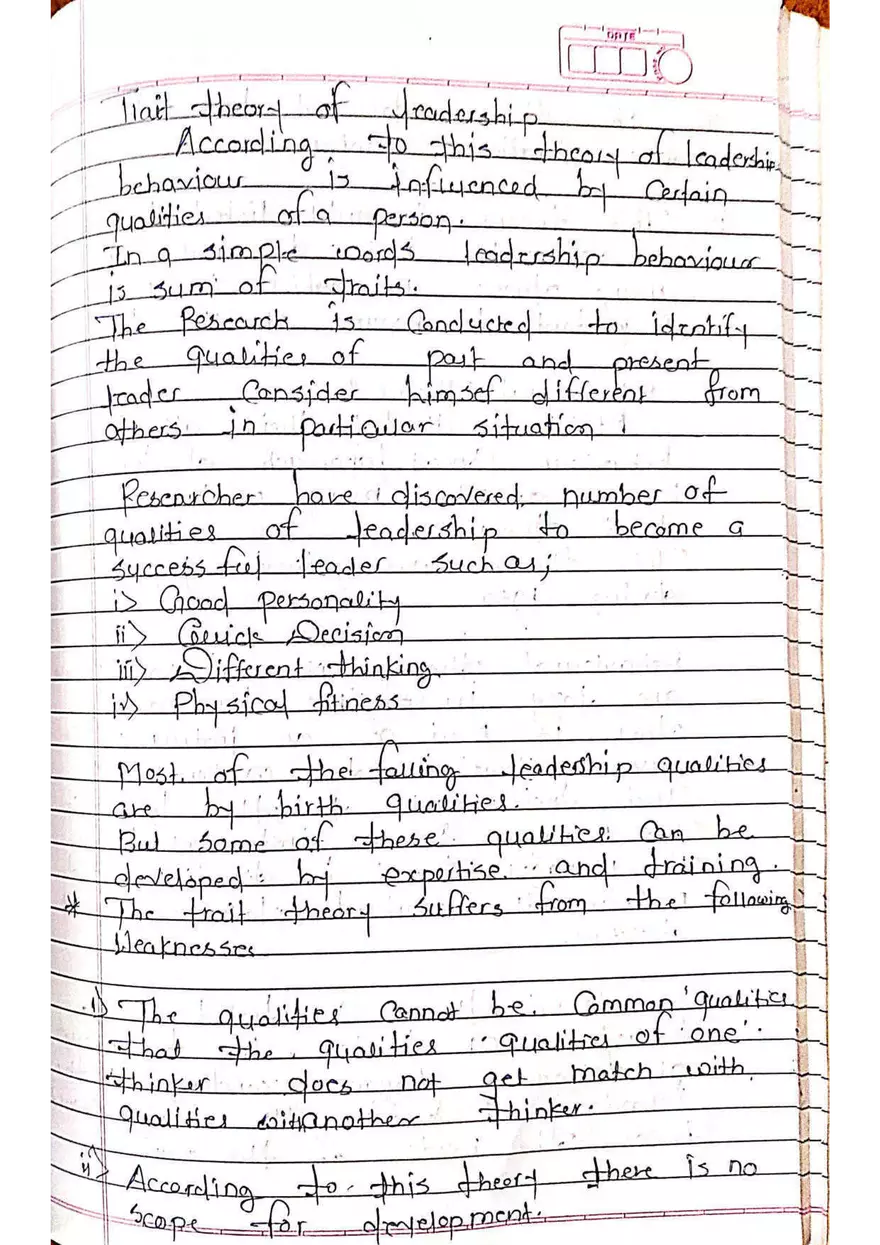 DATE
Trait theory of leadership
According to this theory of leadership
behaviour is influenced by certain
qualities of a person.
In a simple words leadership behaviour
is sum of traits.
The Research is Conducted to identify
the qualities of past and present
leader Consider himsef different from
others in particular situation.
Researcher have discovered number of
qualities of leadership to become a
successful leader such as;
i) Good personality
ii) Quick Decision
iii) Different thinking.
iv) Physical fitness
Most of the falling leadership qualities
are by birth qualities.
But some of these qualities Can be
developed by expertise and training.
* The trait theory suffers from the following
Weaknesses
i) The qualities Cannot be. Common qualities
that the qualities qualities of one
thinker does not get match with
qualities with another thinker.
ii) According to this theory there is no
scope for development.